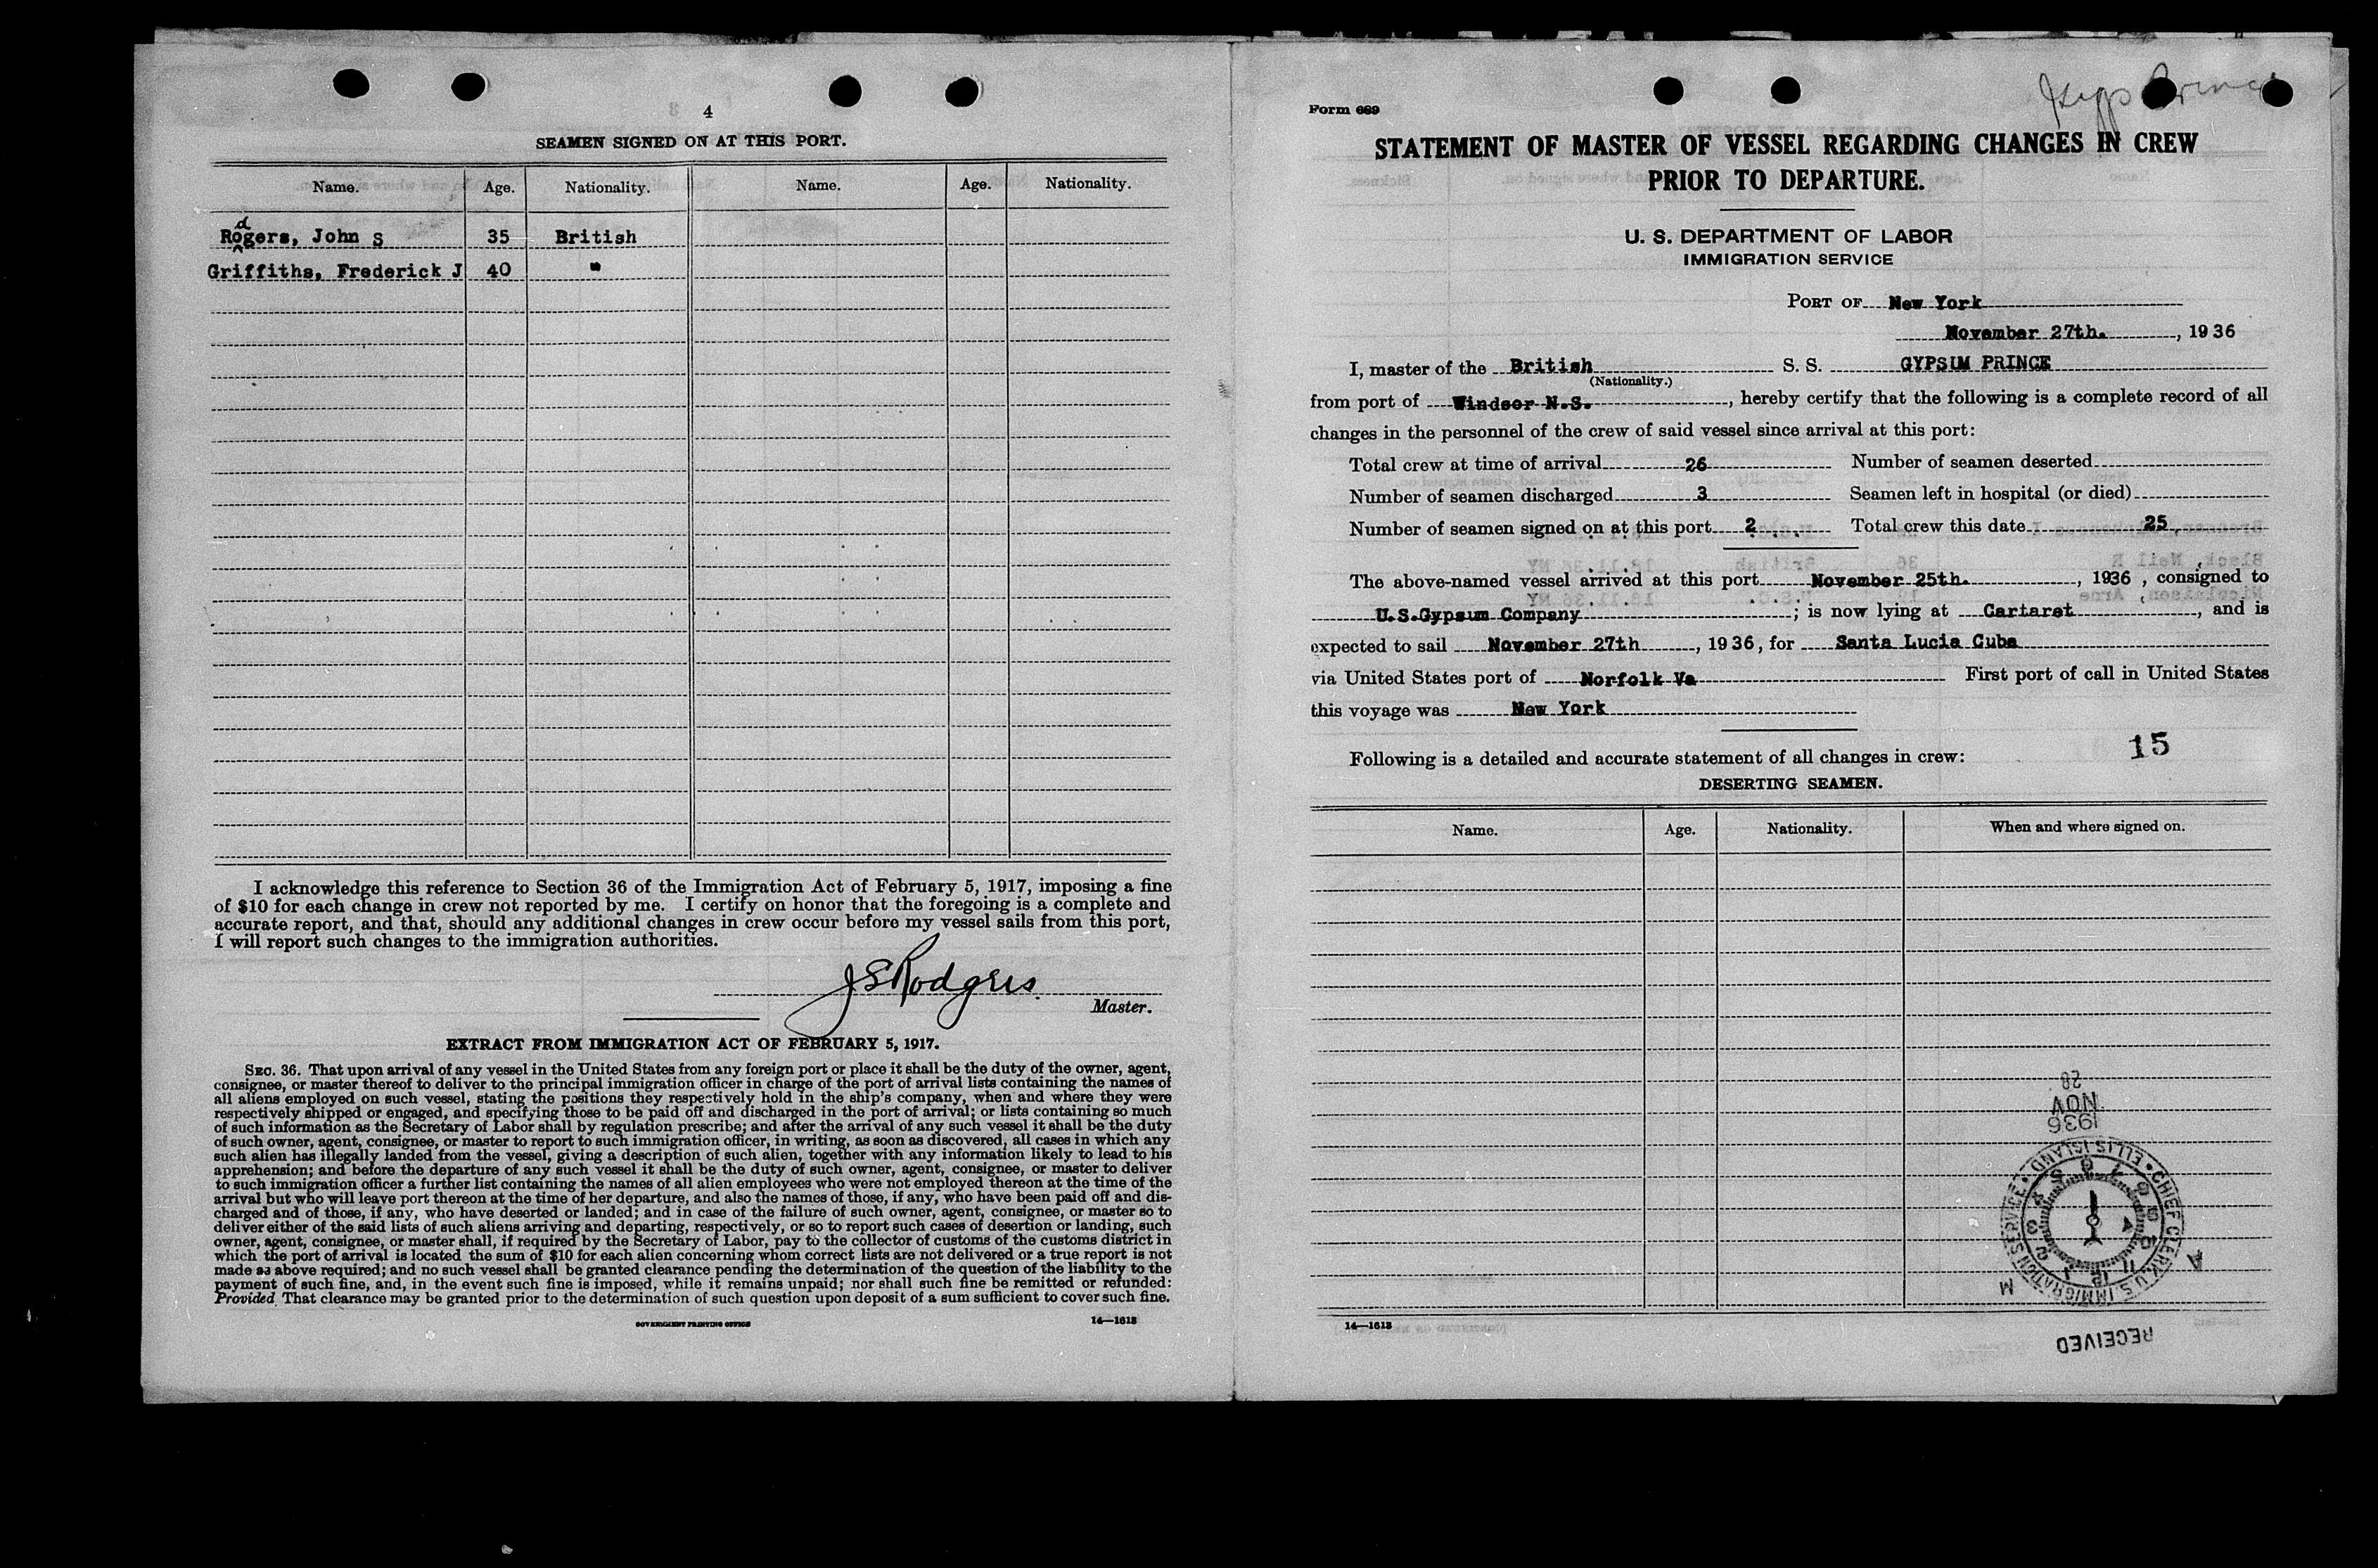 4
SEAMEN SIGNED ON AT THIS PORT.
Name. Age. Nationality. Name. Age. Nationality.
d
Rogers, John S 35 British
Griffiths, Frederick J 40 "
I acknowledge this reference to Section 36 of the Immigration Act of February 5, 1917, imposing a fine
of $10 for each change in crew not reported by me. I certify on honor that the foregoing is a complete and
accurate report, and that, should any additional changes in crew occur before my vessel sails from this port,
I will report such changes to the immigration authorities.
J S Rodgers
Master.
EXTRACT FROM IMMIGRATION ACT OF FEBRUARY 5, 1917.
SEC. 36. That upon arrival of any vessel in the United States from any foreign port or place it shall be the duty of the owner, agent,
consignee, or master thereof to deliver to the principal immigration officer in charge of the port of arrival lists containing the names of
all aliens employed on such vessel, stating the positions they respectively hold in the ship's company, when and where they were
respectively shipped or engaged, and specifying those to be paid off and discharged in the port of arrival; or lists containing so much
of such information as the Secretary of Labor shall by regulation prescribe; and after the arrival of any such vessel it shall be the duty
of such owner, agent, consignee, or master to report to such immigration officer, in writing, as soon as discovered, all cases in which any
such alien has illegally landed from the vessel, giving a description of such alien, together with any information likely to lead to his
apprehension; and before the departure of any such vessel it shall be the duty of such owner, agent, consignee, or master to deliver
to such immigration officer a further list containing the names of all alien employees who were not employed thereon at the time of the
arrival but who will leave port thereon at the time of her departure, and also the names of those, if any, who have been paid off and dis-
charged and of those, if any, who have deserted or landed; and in case of the failure of such owner, agent, consignee, or master so to
deliver either of the said lists of such aliens arriving and departing, respectively, or so to report such cases of desertion or landing, such
owner, agent, consignee, or master shall, if required by the Secretary of Labor, pay to the collector of customs of the customs district in
which the port of arrival is located the sum of $10 for each alien concerning whom correct lists are not delivered or a true report is not
made as above required; and no such vessel shall be granted clearance pending the determination of the question of the liability to the
payment of such fine, and, in the event such fine is imposed, while it remains unpaid; nor shall such fine be remitted or refunded:
Provided, That clearance may be granted prior to the determination of such question upon deposit of a sum sufficient to cover such fine.
GOVERNMENT PRINTING OFFICE 14—1613
Gyps Prince
Form 689
STATEMENT OF MASTER OF VESSEL REGARDING CHANGES IN CREW
PRIOR TO DEPARTURE.
U. S. DEPARTMENT OF LABOR
IMMIGRATION SERVICE
PORT OF New York
November 27th. , 1936
I, master of the British S. S. GYPSUM PRINCE
(Nationality.)
from port of Windsor N.S. , hereby certify that the following is a complete record of all
changes in the personnel of the crew of said vessel since arrival at this port:
Total crew at time of arrival 26 Number of seamen deserted
Number of seamen discharged 3 Seamen left in hospital (or died)
Number of seamen signed on at this port 2 Total crew this date 25
The above-named vessel arrived at this port November 25th. , 1936 , consigned to
U.S.Gypsum Company ; is now lying at Cartaret , and is
expected to sail November 27th , 1936, for Santa Lucia Cuba
via United States port of Norfolk Va First port of call in United States
this voyage was New York
15
Following is a detailed and accurate statement of all changes in crew:
DESERTING SEAMEN.
Name. Age. Nationality. When and where signed on.
28
NOV
1936
CHIEF CLERK, U.S. IMMIGRATION SERVICE • ELLIS ISLAND •
1 2 3 4 5 6 7 8 9 10 11 12
A M
RECEIVED
14—1613